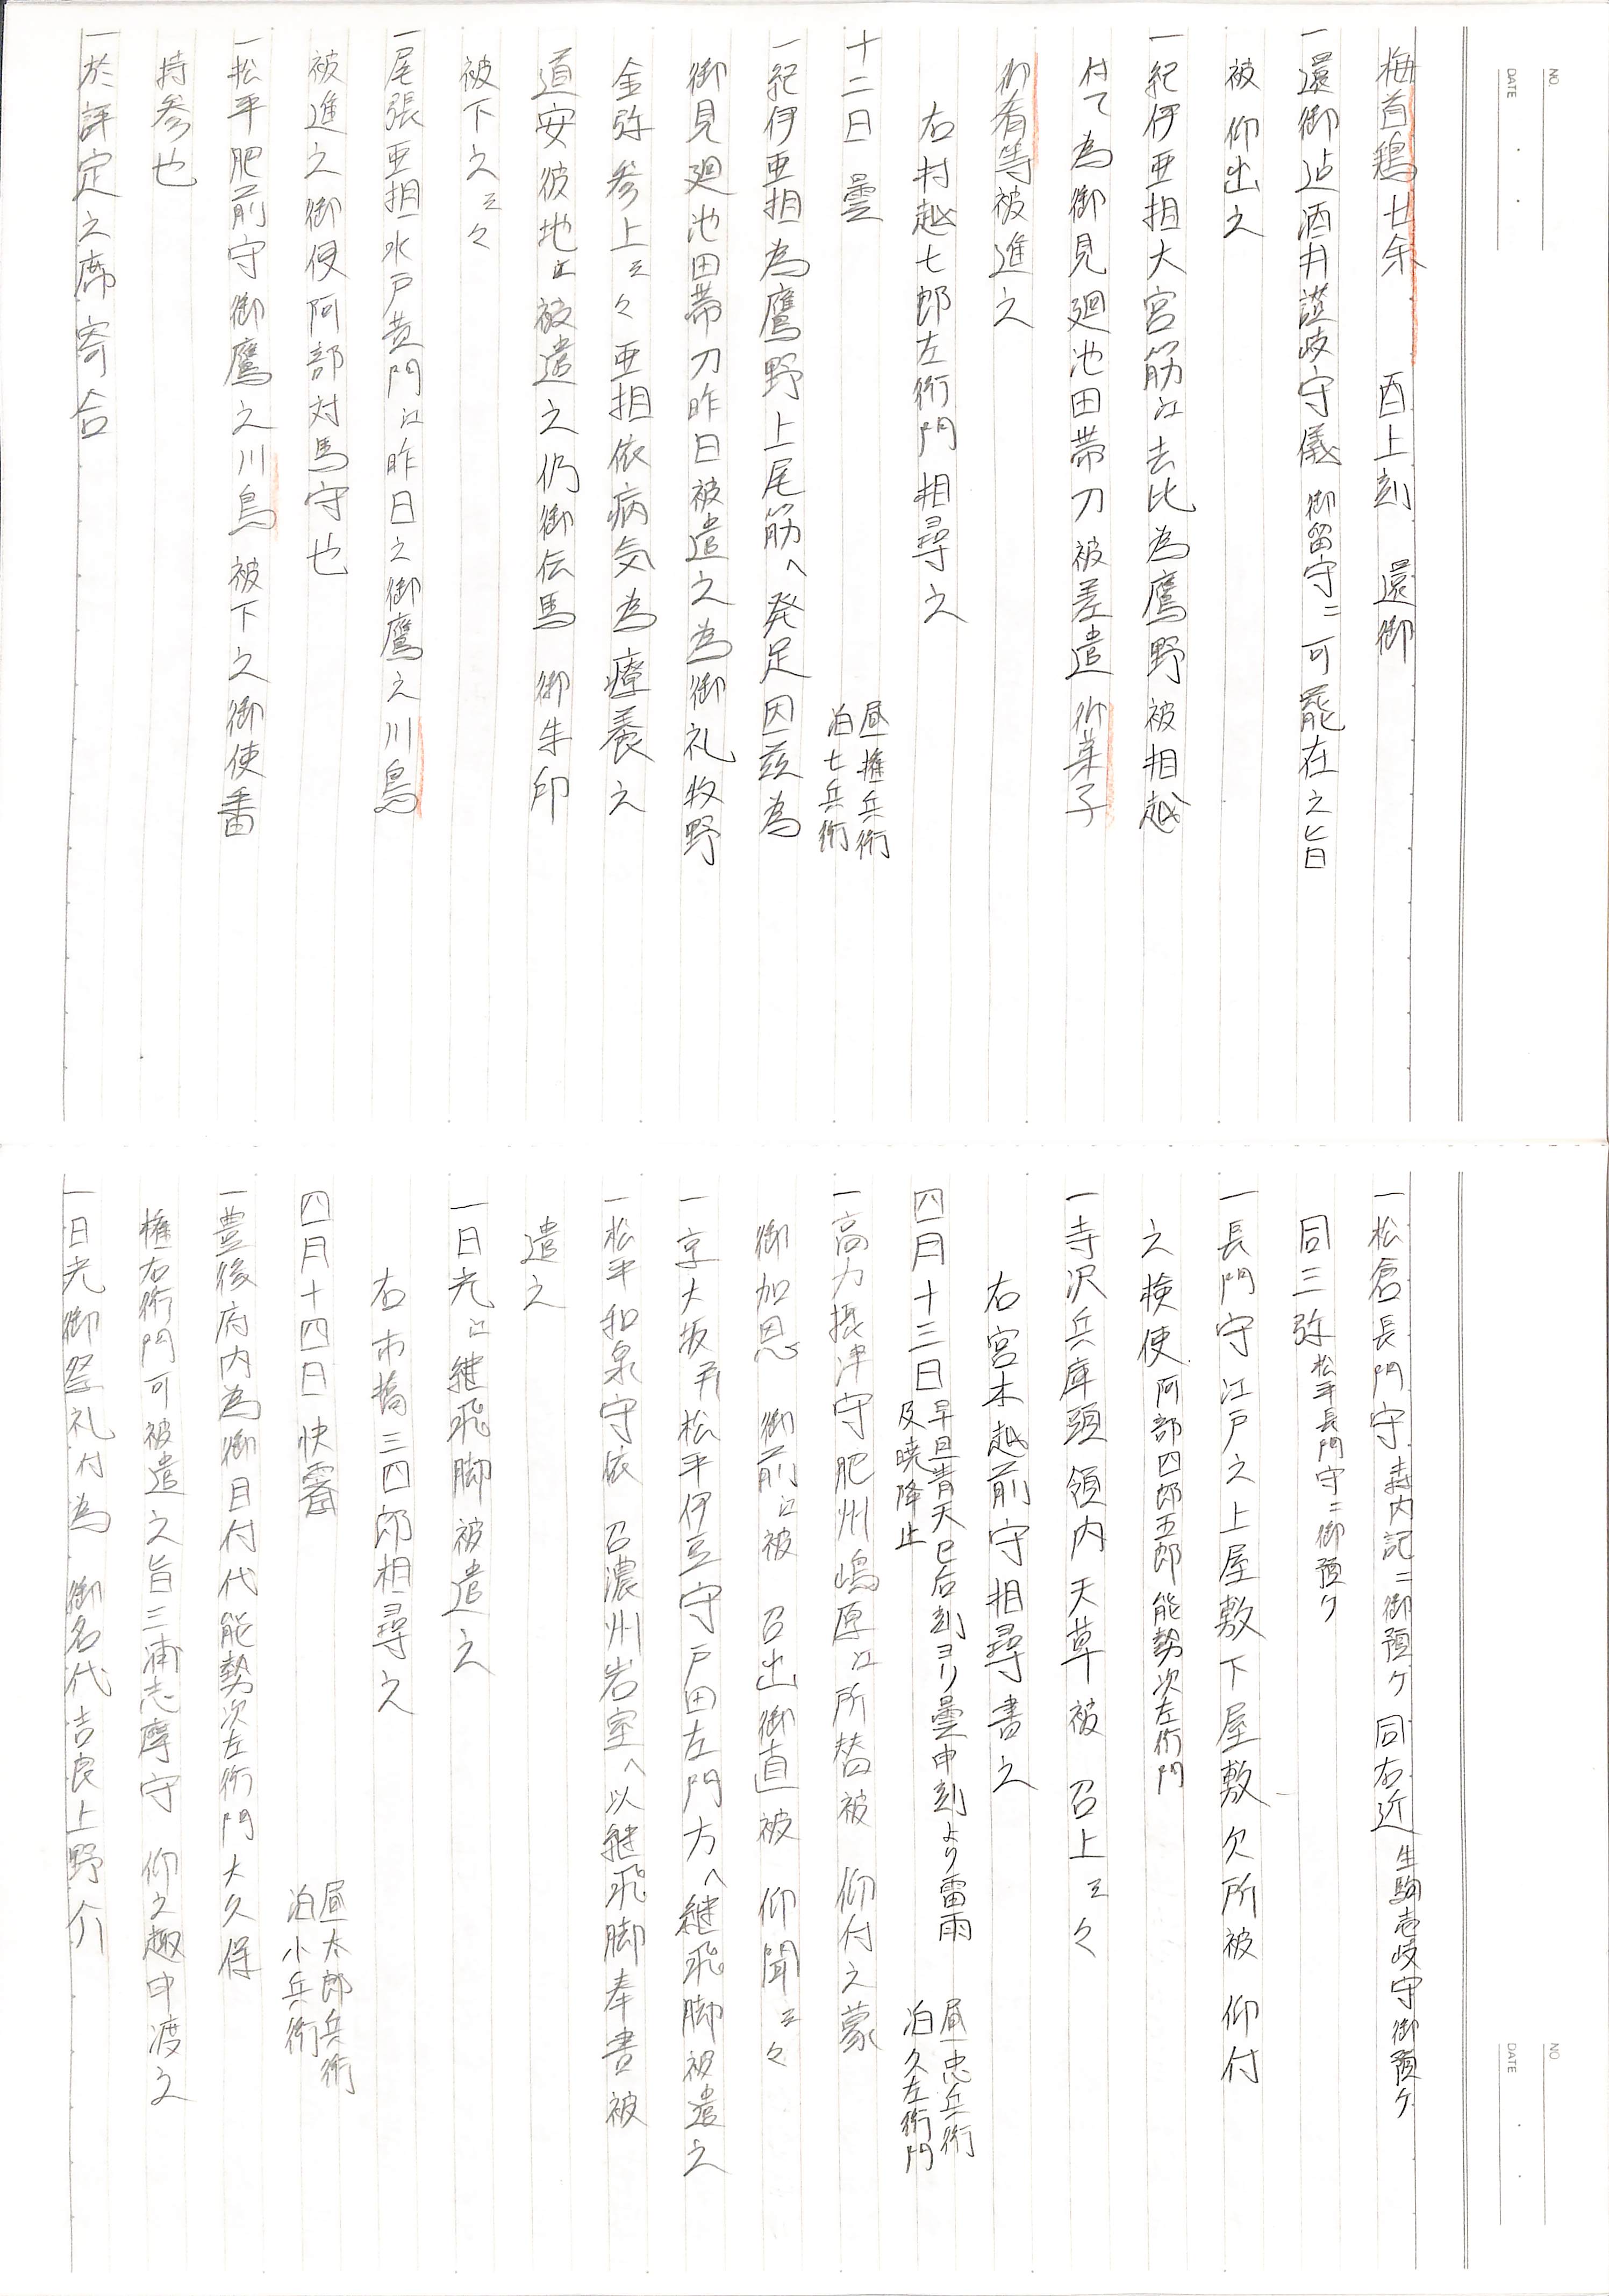 NO.
DATE
梅首鶏廿余　酉上刻　還御
一還御迠酒井讃岐守儀　御留守ニ可罷在之旨
被　仰出之
一紀伊亜相大宮筋江去比為鷹野被相越
付て為御見廻池田帯刀被差遣　御菓子
御肴等被進之
右村越七郎左衛門相尋之
十二日　曇　昼権兵衛
泊七兵衛
一紀伊亜相為鷹野上尾筋へ発足因茲為
御見廻池田帯刀昨日被遣之為御礼牧野
金弥参上云々亜相依病気為療養之
道安彼地江被遣之仍御伝馬　御朱印
被下之云々
一尾張亜相水戸黄門江昨日之御鷹之川鳥
被進之御使阿部対馬守也
一松平肥前守御鷹之川鳥被下之御使番
持参也
一於評定之席寄合
NO.
DATE
一松倉長門守森内記ニ御預ケ　同右近生駒壱岐守御預ケ
同三弥松平長門守ニ御預ケ
一長門守江戸之上屋敷下屋敷欠所被　仰付
之検使阿部四郎五郎能勢次左衛門
一寺沢兵庫頭領内天草被　召上云々
右宮木越前守相尋書之
四月十三日早旦青天巳后刻ヨリ曇申刻より雷雨
及暁降止　昼忠兵衛
泊久左衛門
一高力摂津守肥州嶋原江所替被　仰付之蒙
御加恩　御前江被　召出御直被　仰聞云々
一京大坂并松平伊豆守戸田左門方へ継飛脚被遣之
一松平和泉守依　召濃州岩室へ以継飛脚奉書被
遣之
一日光江継飛脚被遣之
右市橋三四郎相尋之
四月十四日　快霽　昼太郎兵衛
泊小兵衛
一豊後府内為御目付代能勢次左衛門大久保
権右衛門可被遣之旨三浦志摩守　仰之趣申渡之
一日光御祭礼付為　御名代吉良上野介